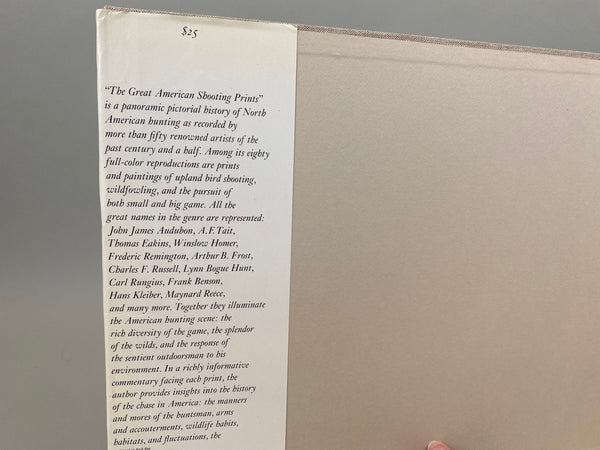 $25
"The Great American Shooting Prints"
is a panoramic pictorial history of North
American hunting as recorded by
more than fifty renowned artists of the
past century and a half. Among its eighty
full-color reproductions are prints
and paintings of upland bird shooting,
wildfowling, and the pursuit of
both small and big game. All the
great names in the genre are represented:
John James Audubon, A.F. Tait,
Thomas Eakins, Winslow Homer,
Frederic Remington, Arthur B. Frost,
Charles F. Russell, Lynn Bogue Hunt,
Carl Rungius, Frank Benson,
Hans Kleiber, Maynard Reece,
and many more. Together they illuminate
the American hunting scene: the
rich diversity of the game, the splendor
of the wilds, and the response of
the sentient outdoorsman to his
environment. In a richly informative
commentary facing each print, the
author provides insights into the history
of the chase in America: the manners
and mores of the huntsman, arms
and accouterments, wildlife habits,
habitats, and fluctuations, the